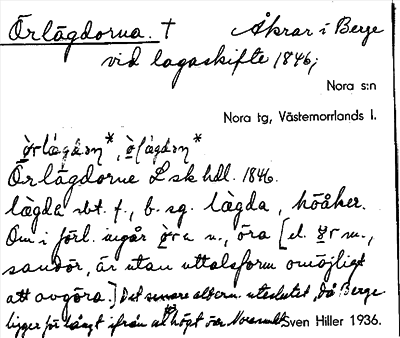 Örlägdorna. † Åkrar i Berge
vid lagaskifte 1846;
Nora s:n
Nora tg, Västernorrlands l.
Örlägdorne Lsk hdl. 1846.
lägda sbt. f., b. sg. lägda, höåker.
Om i förl. ingår öra n., öra [el. ur m.,
sandör, är utan uttalsform omöjligt
att avgöra.] Det senare altern. uteslutet, då Berge
ligger för långt ifrån och högt över
Sven Hiller 1936.